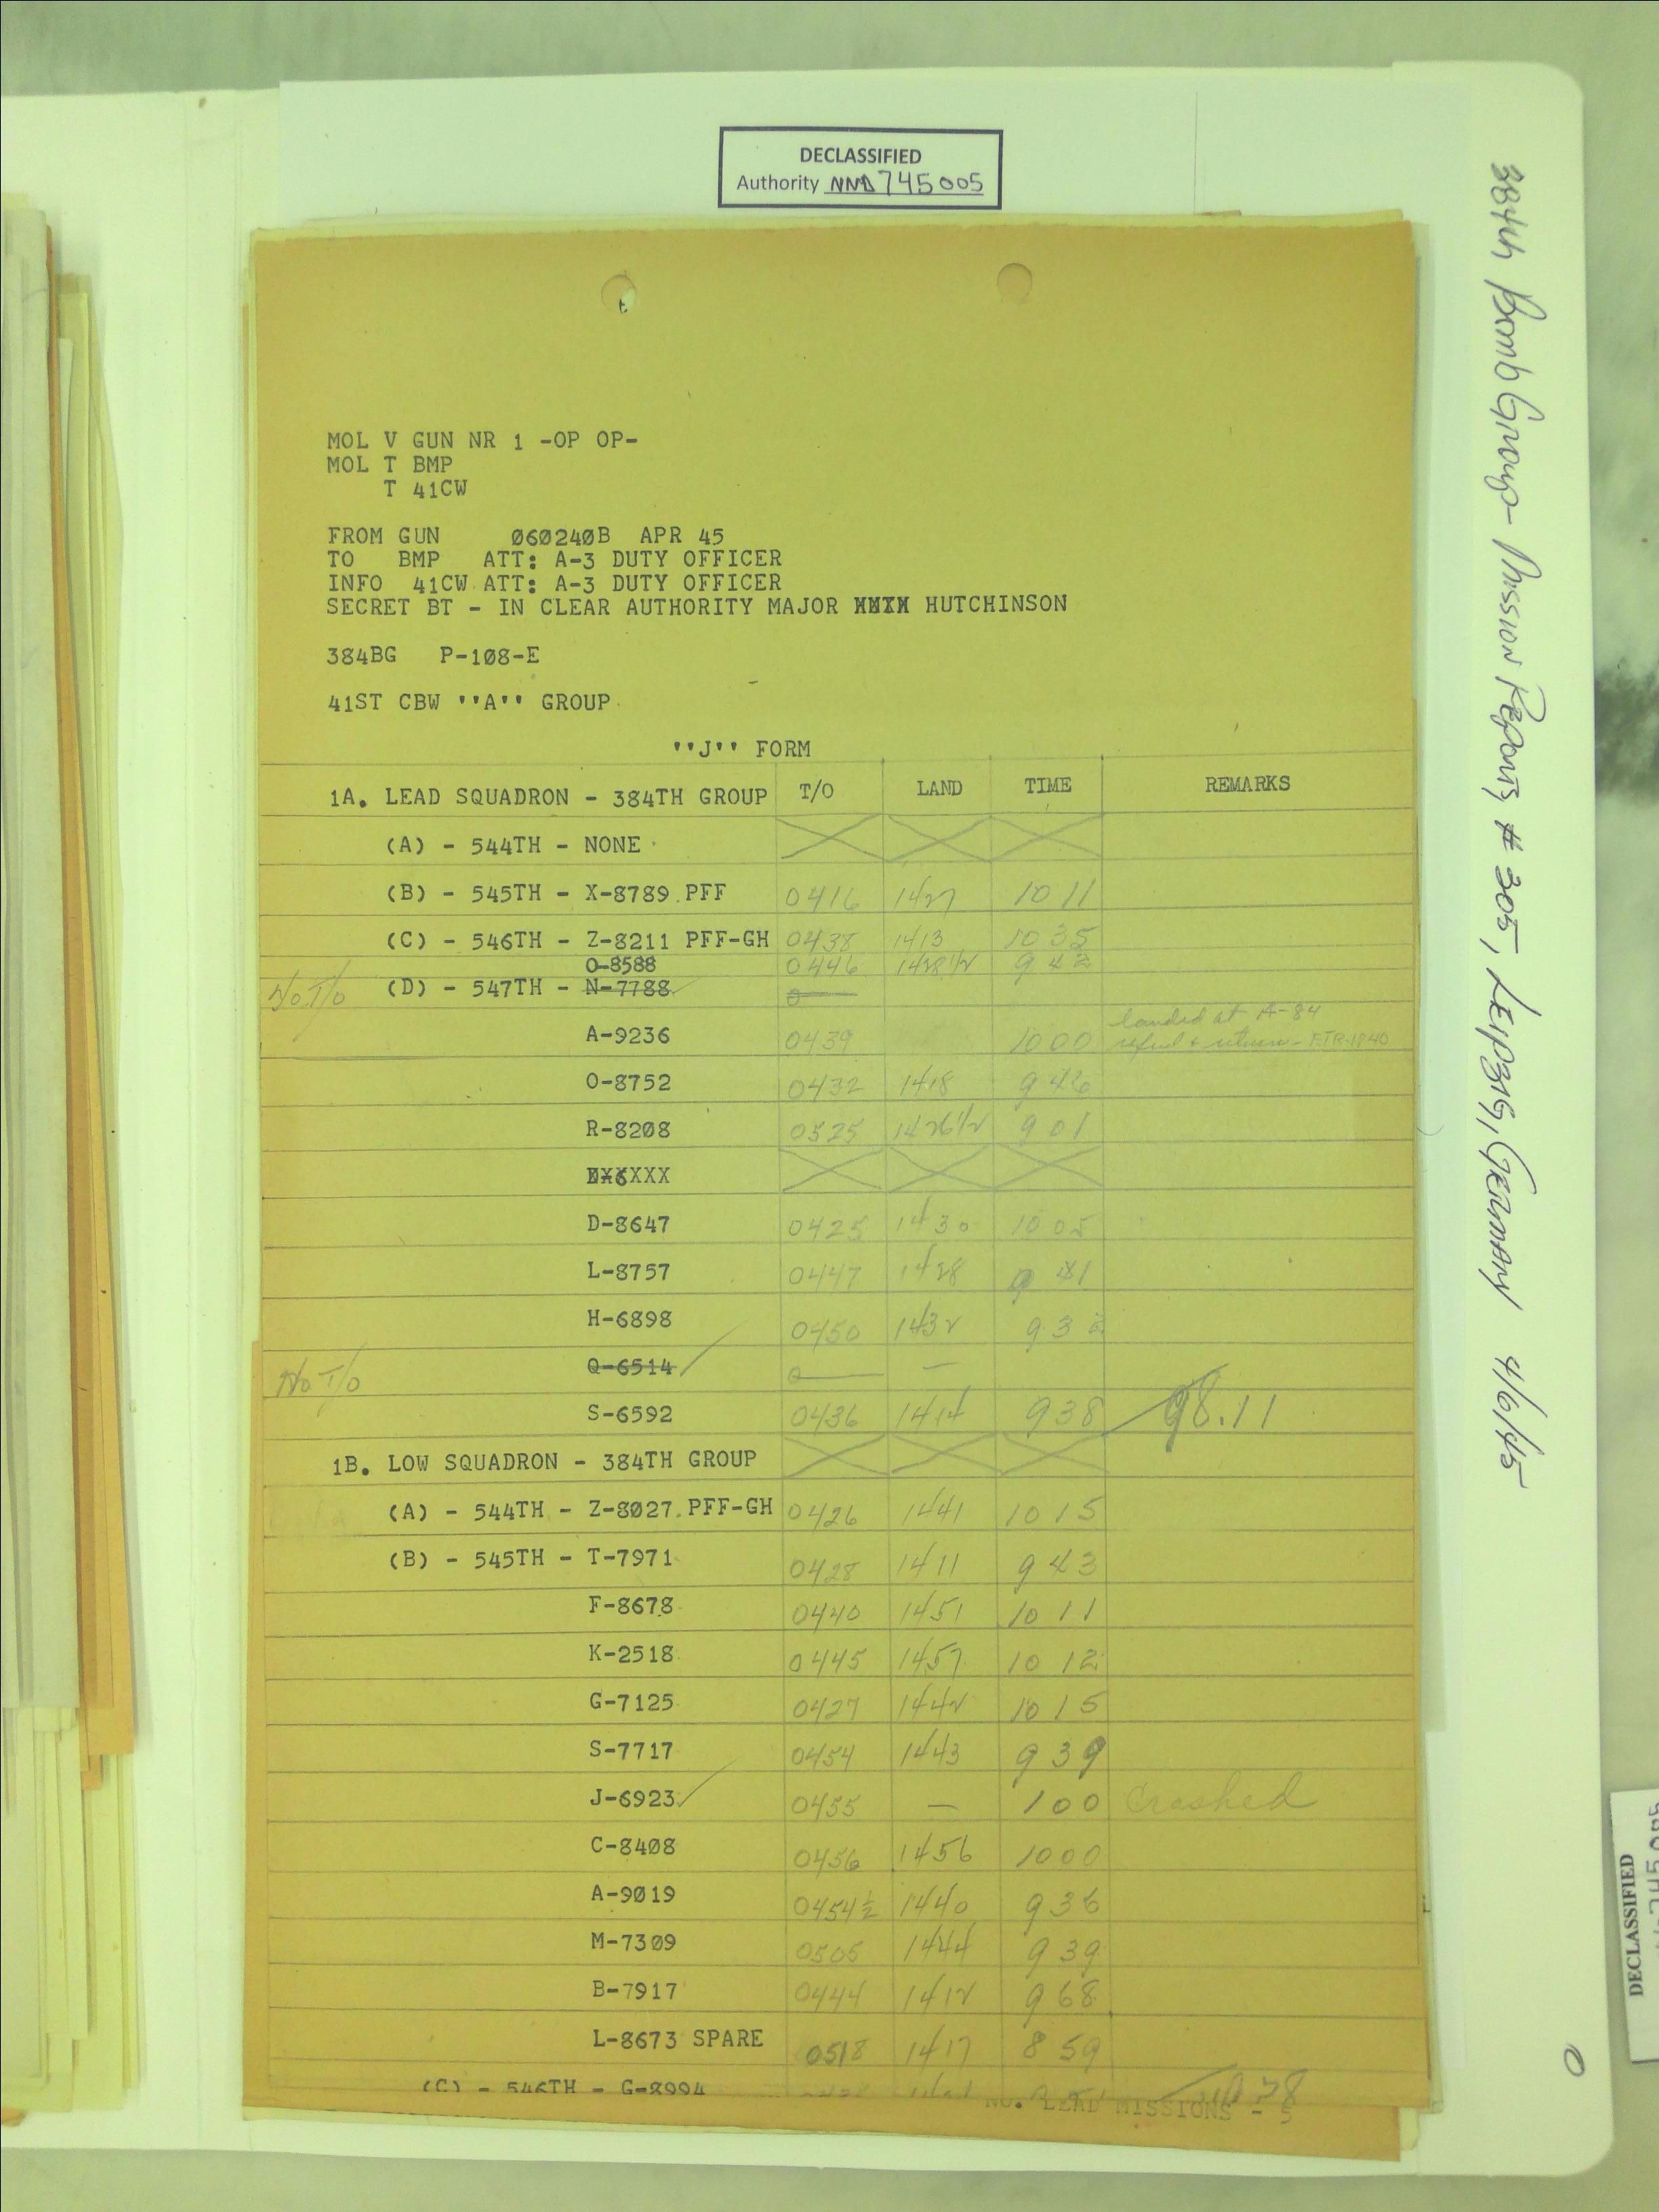 DECLASSIFIED
Authority NND 745005
384th Bomb Group - Mission Reports # 305, LEIPZIG, GERMANY 4/6/45
MOL V GUN NR 1 -OP OP-
MOL T BMP
T 41CW
FROM GUN 060240B APR 45
TO BMP ATT: A-3 DUTY OFFICER
INFO 41CW ATT: A-3 DUTY OFFICER
SECRET BT - IN CLEAR AUTHORITY MAJOR HUTCHINSON
384BG P-108-E
41ST CBW ''A'' GROUP
''J'' FORM
1A. LEAD SQUADRON - 384TH GROUP T/O LAND TIME REMARKS
(A) - 544TH - NONE
(B) - 545TH - X-8789 PFF 0416 1427 10 11
(C) - 546TH - Z-8211 PFF-GH 0438 1413 10 35
O-8588 0446 1428 1/2 9 42
No T/O (D) - 547TH - N-7788 0
A-9236 0439 10 00 landed at A-84
refuel & return - ETR-1840
O-8752 0432 1418 9 46
R-8208 0525 1426 1/2 9 01
XXX
D-8647 0425 1430 10 05
L-8757 0447 1428 9 41
H-6898 0450 1432 9 3
No T/O Q-6514 0 —
S-6592 0436 1414 9 38 98.11
1B. LOW SQUADRON - 384TH GROUP
(A) - 544TH - Z-8027 PFF-GH 0426 1441 10 15
(B) - 545TH - T-7971 0428 1411 9 43
F-8678 0440 1451 10 11
K-2518 0445 1457 10 12
G-7125 0427 1442 10 15
S-7717 0454 1443 9 39
J-6923 0455 — 1 00 Crashed
C-8408 0456 1456 10 00
A-9019 0454 1/2 1440 9 36
M-7309 0505 1444 9 39
B-7917 0444 1412 9 68
L-8673 SPARE 0518 1417 8 59
(C) - 546TH - G-8994
NO. LEAD MISSIONS - 5
DECLASSIFIED
0